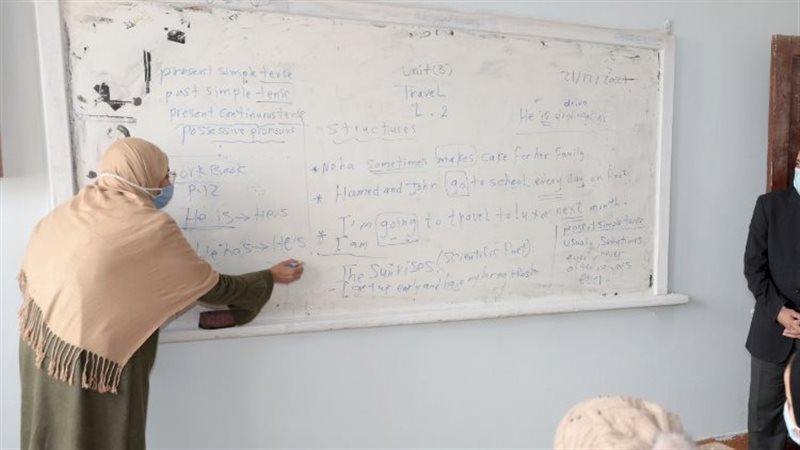 present simple tense
past simple tense
present continuous tense
possessive pronouns
Work Book
P. 12
He is → He's
He has → He's
Unit (3)
Travel
L. 2
structures
21/12/2021
drive
He is
* Noha sometimes makes cake for her family
* Hamed and John go to school every day on foot
* I'm going to travel to luxor next month.
I am
The Sun rises. (Scientific Fact)
- I get up early and have my breakfast
present simple tense
usually sometimes
every never